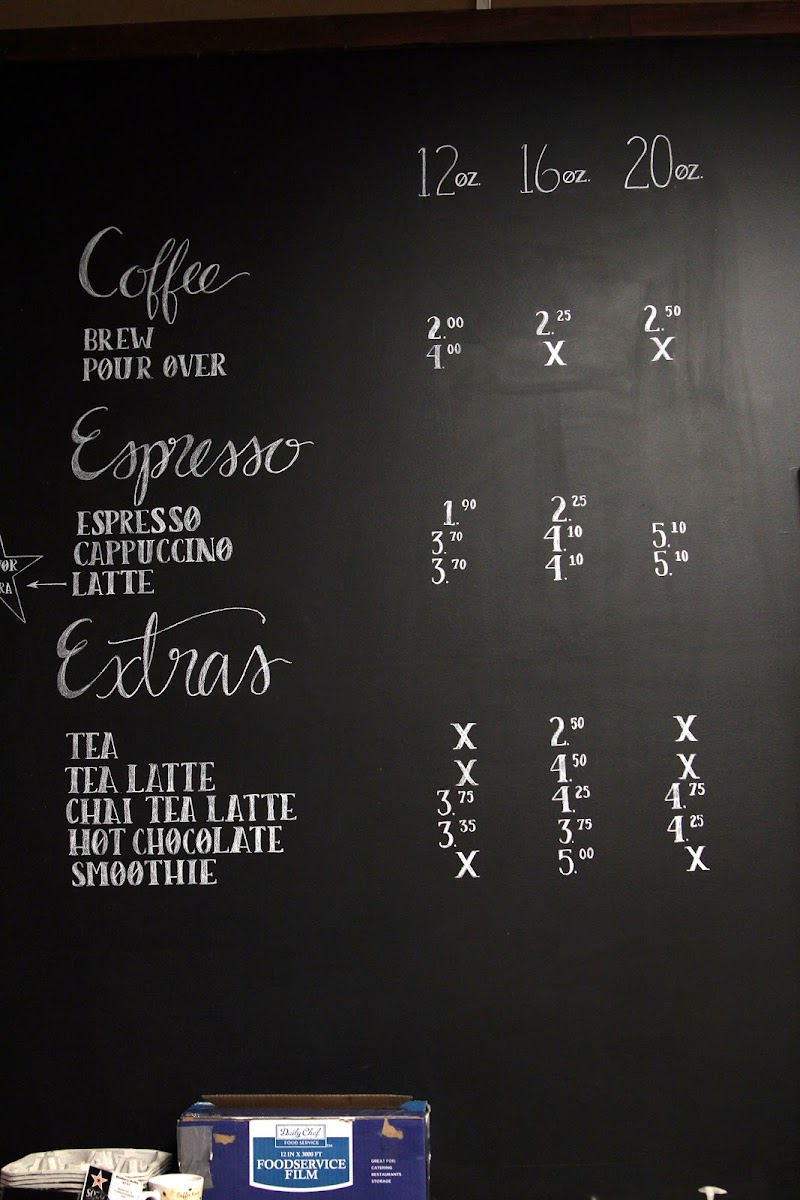 12oz. 16oz. 20oz.
Coffee
BREW 2.00 2.25 2.50
POUR OVER 4.00 X X
Espresso
ESPRESSO 1.90 2.25
CAPPUCCINO 3.70 4.10 5.10
LATTE 3.70 4.10 5.10
Extras
TEA X 2.50 X
TEA LATTE X 4.50 X
CHAI TEA LATTE 3.75 4.25 4.75
HOT CHOCOLATE 3.35 3.75 4.25
SMOOTHIE X 5.00 X
Daily Chef
FOOD SERVICE
12 IN X 3000 FT
FOODSERVICE
FILM
GREAT FOR:
CATERING
RESTAURANTS
STORAGE